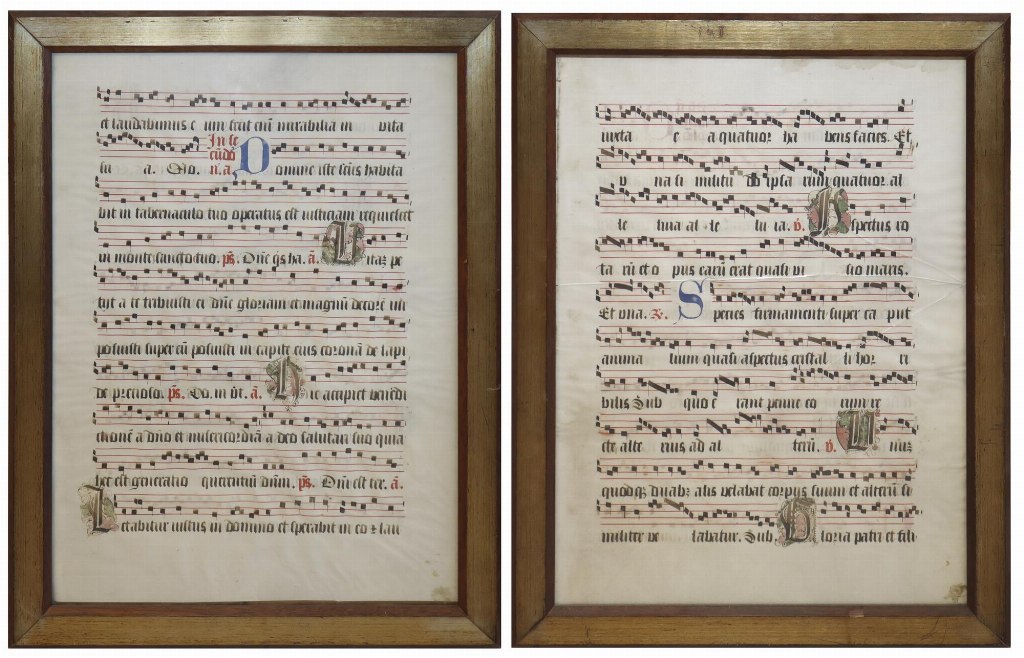 et laudabimus e um fecit enī mirabilia in vita
In se
cūdō
su a. Do. n. a D omine iste sctūs habita
bit in tabernaculo tuo operatus est iusticiam requiescet
in monte sancto tuo. ps. Dñe qs ha. ā. U itaz pe
tijt a te tribuisti ei dñe gloriam et magnū decorē im
posuisti super eū posuisti in capite eius coronā de lapi
de precioso. ps. Do. in v̄t. ā. H ic accipiet benedi
ctionē a dño et misericordiā a deo salutari suo quia
hec est generatio querentiū dñm. ps. Dñi est ter. ā.
L etabitur iustus in domino et sperabit in eo et lau
iuxta e a quatuor ha bens facies. Et
v na si militu do ipsa rum quatuor al
le luia al le lu ia. v. A spectus ro
ta rū et o pus earū erat quasi vi sio maris.
Et vna. R. S pecies firmamenti super ca put
anima lium quasi aspectus cristal li hor ri
bilis Sub quo e rant penne eo rum re
cte alte rius ad al terū. v. U nuz
quodqz duabz alis velabat corpus suum et alterū si
militer ve labatur. Sub. G loria patri et fili